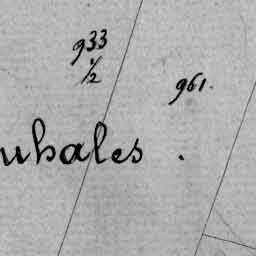 933
1/2
961.
uhales.